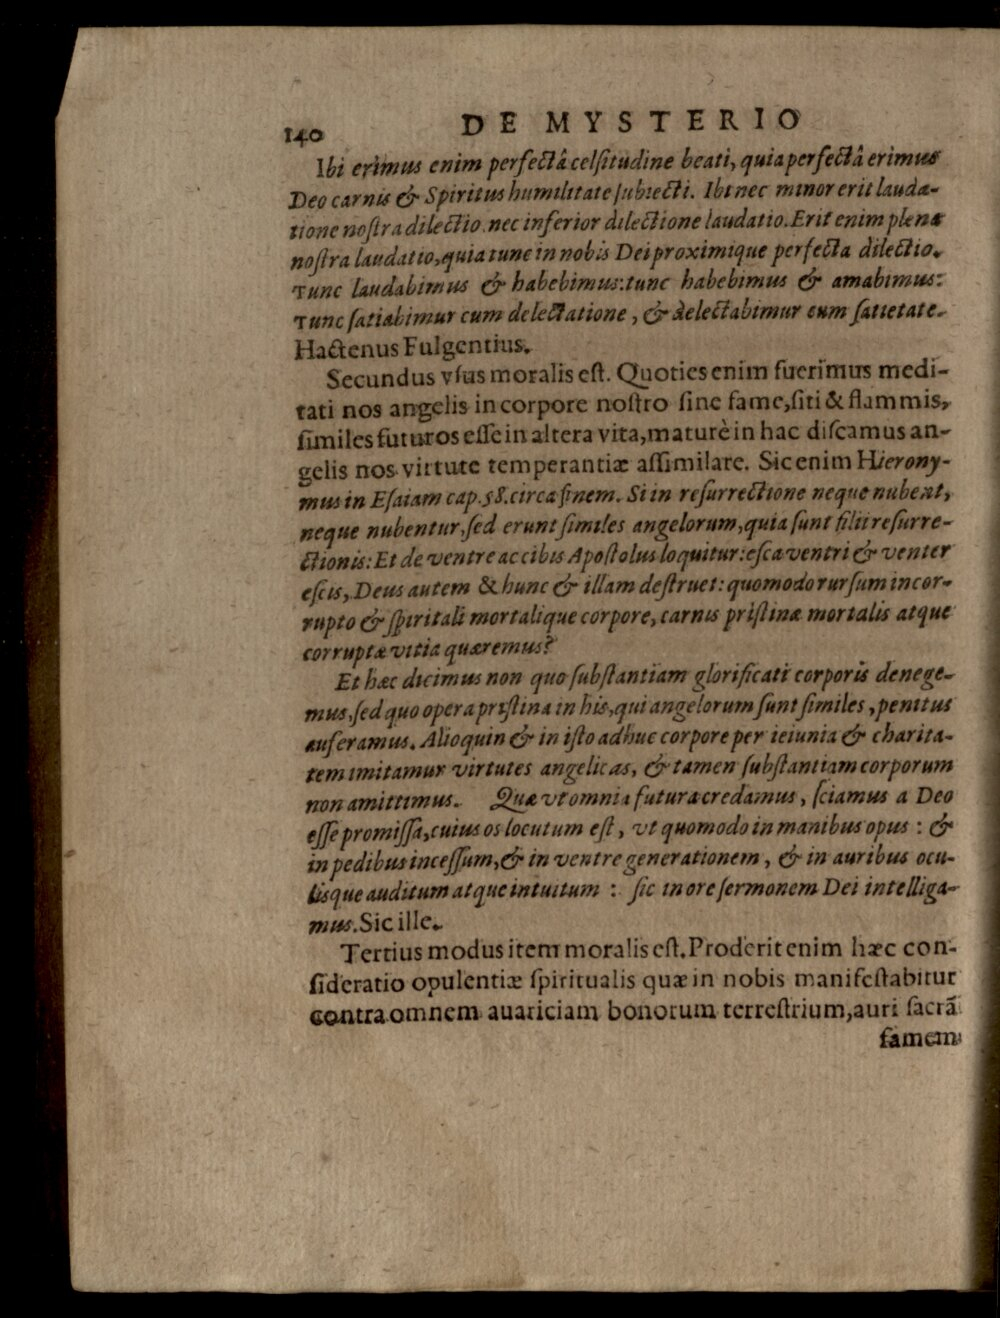 140 DE MYSTERIO
Ibi erimus enim perfectâ celſitudine beati, quia perfectâ erimus
Deo carnis & Spiritus humilitate ſubiecti. Ibi nec minor erit lauda-
tione noſtra dilectio, nec inferior dilectione laudatio. Erit enim plena
noſtra laudatio, quia tunc in nobis Dei proximique perfecta dilectio.
Tunc laudabimus & habebimus: tunc habebimus & amabimus:
Tunc ſatiabimur cum delectatione, & delectabimur cum ſatietate.
Hactenus Fulgentius.
Secundus vſus moralis eſt. Quoties enim fuerimus medi-
tati nos angelis in corpore noſtro ſine fame, ſiti & flammis,
ſimiles futuros eſſe in altera vita, maturè in hac diſcamus an-
gelis nos virtute temperantiæ aſſimilare. Sic enim Hierony-
mus in Eſaiam cap. 58. circa finem. Si in reſurrectione neque nubent,
neque nubentur, ſed erunt ſimiles angelorum, quia ſunt filii reſurre-
ctionis: Et de ventre ac cibis Apoſtolus loquitur: eſca ventri & venter
eſcis, Deus autem & hunc & illam deſtruet: quomodo rurſum incor-
rupto & ſpiritali mortalique corpore, carnis priſtinæ mortalis atque
corruptæ vitia quæremus?
Et hæc dicimus non quo ſubſtantiam glorificati corporis denege-
mus, ſed quo opera priſtina in his, qui angelorum ſunt ſimiles, penitus
auferamus. Alioquin & in iſto adhuc corpore per ieiunia & charita-
tem imitamur virtutes angelicas, & tamen ſubſtantiam corporum
non amittimus. Quæ vt omnia futura credamus, ſciamus a Deo
eſſe promiſſa, cuius os locutum eſt, vt quomodo in manibus opus: &
in pedibus inceſſum, & in ventre generationem, & in auribus ocu-
lisque auditum atque intuitum: ſic in ore ſermonem Dei intelliga-
mus. Sic ille.
Tertius modus item moralis eſt. Proderit enim hæc con-
ſideratio opulentiæ ſpiritualis quæ in nobis manifeſtabitur
contra omnem auariciam bonorum terreſtrium, auri ſacrã
famem